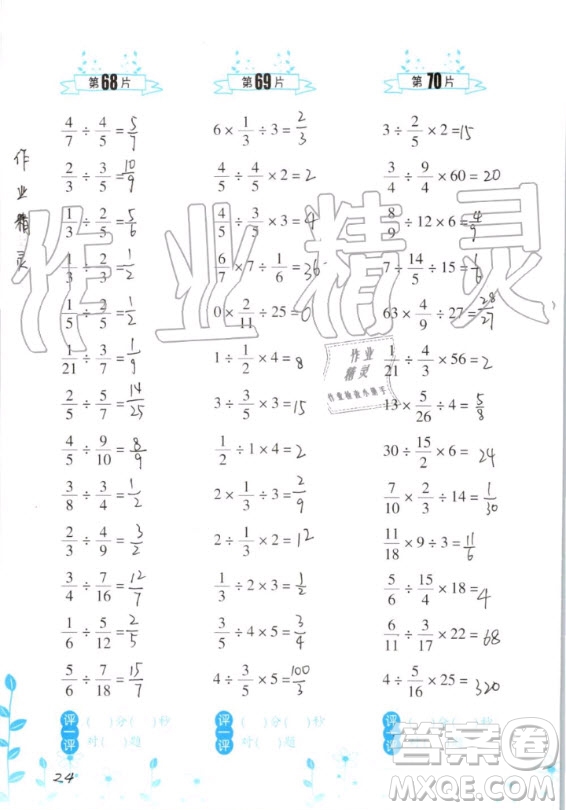 第68片
4/7 ÷ 4/5 = 5/7
2/3 ÷ 3/5 = 10/9
1/3 ÷ 2/5 = 5/6
1/3 ÷ 2/3 = 1/2
1/5 ÷ 2/5 = 1/2
1/21 ÷ 3/7 = 1/9
2/5 ÷ 5/7 = 14/25
4/5 ÷ 9/10 = 8/9
3/8 ÷ 3/4 = 1/2
2/3 ÷ 4/9 = 3/2
3/4 ÷ 7/16 = 12/7
1/6 ÷ 5/12 = 2/5
5/6 ÷ 7/18 = 15/7
评一评
( )分( )秒
对( )题
第69片
6 × 1/3 ÷ 3 = 2/3
4/5 ÷ 4/5 × 2 = 2
4/5 ÷ 3/5 × 3 = 4
6/7 × 7 ÷ 1/6 = 36
0 × 2/11 ÷ 25 = 0
1 ÷ 1/2 × 4 = 8
3 ÷ 3/5 × 3 = 15
1/2 ÷ 1 × 4 = 2
1/3 × 2 ÷ 3 = 2/9
2 ÷ 1/3 × 2 = 12
1/3 ÷ 2 × 3 = 1/2
3/5 ÷ 4 × 5 = 3/4
4 ÷ 3/5 × 5 = 100/3
评一评
( )分( )秒
对( )题
第70片
3 ÷ 2/5 × 2 = 15
3/4 ÷ 9/4 × 60 = 20
8/9 ÷ 12 × 6 = 4/9
7 ÷ 14/5 ÷ 15 = 1/6
63 × 4/9 ÷ 27 = 28/27
1/21 ÷ 4/3 × 56 = 2
13 × 5/26 ÷ 4 = 5/8
30 ÷ 15/2 × 6 = 24
7/10 × 2/3 ÷ 14 = 1/30
11/18 × 9 ÷ 3 = 11/6
5/6 ÷ 15/4 × 18 = 4
6/11 ÷ 3/17 × 22 = 68
4 ÷ 5/16 × 25 = 320
评一评
( )分( )秒
对( )题
作业精灵
作业精灵
作业精灵
24
答案圈
MXQE.COM